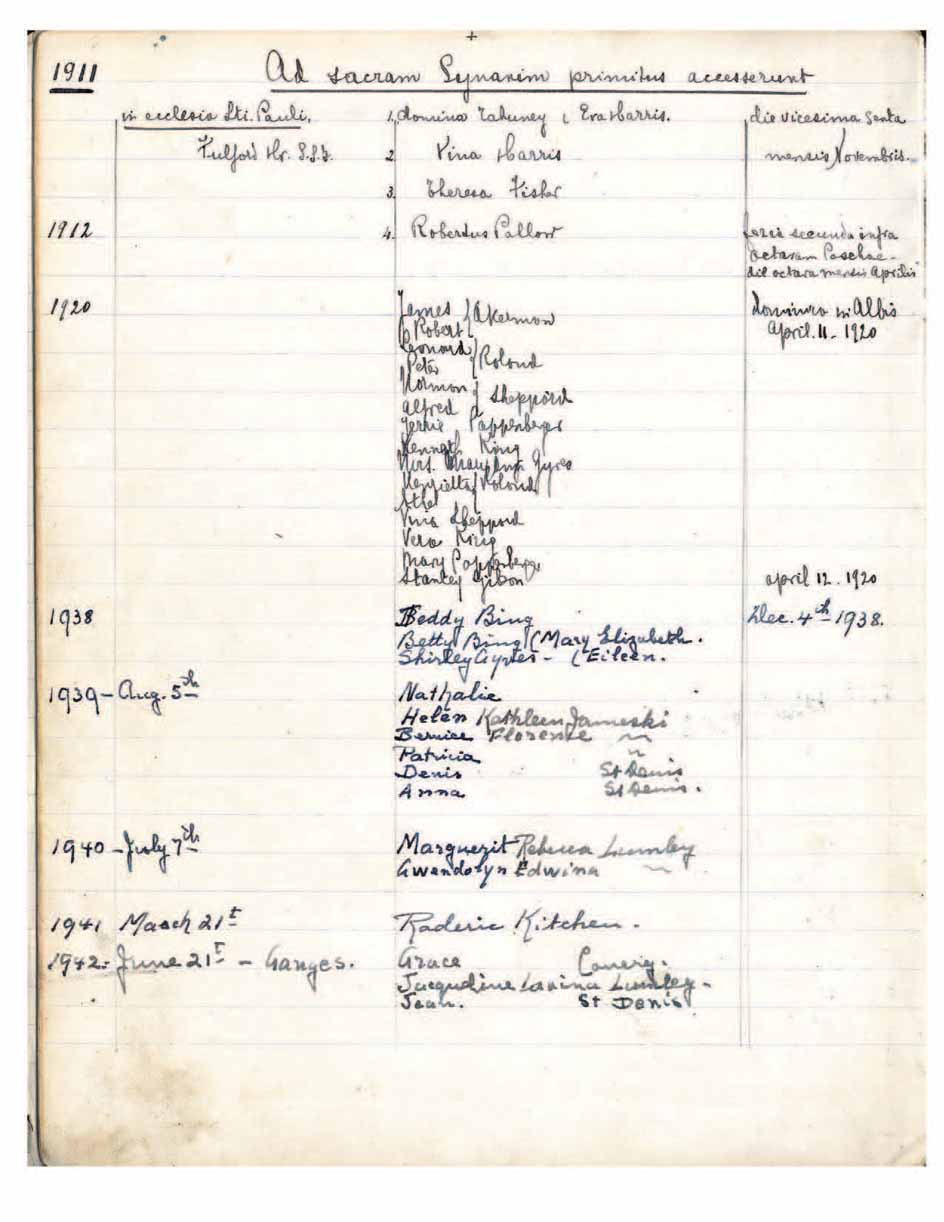 1911 Ad sacram Synaxim primitus accesserunt
in ecclesia Sti. Pauli, 1. domina Eva Harris. die vicesima sexta
Fulford Hr. S.S.I. 2 Vina Harris mensis Novembris.
3. Theresa Fisher
1912 4. Robertus Pallow feria secunda infra
octavam Paschae -
die octava mensis Aprilis
1920 James Akerman dominica in Albis
Robert April. 11 - 1920
Leonard
Peter Roland
Norman
Alfred Sheppard
Pappenberger
Kenneth King
Mrs. Mary Ann Gyves
Henrietta Roland
Vina Sheppard
Vera King
Mary Pappenberger
Stanley Gibon april 12. 1920
1938 Beddy Bing Dec. 4th 1938.
Betty Bing (Mary Elizabeth.
Shirley - (Eileen.
1939 - Aug. 5th Nathalie
Helen Kathleen Jameski
Bernice Florence ~
Patricia ~
Denis St Denis
Anna St Denis.
1940 - July 7th Marguerit Rebecca Lumley
Gwendolyn Edwina ~
1941 March 21t Raderic Kitchen.
1942: June 21t - Ganges. Grace
Jacqueline Lavina Lumley -
Jean. St Denis